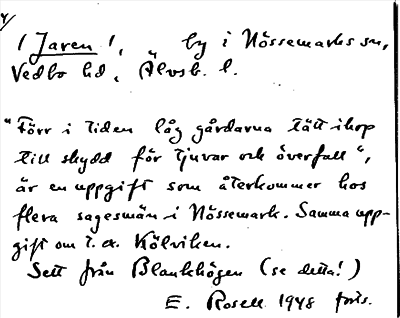 /Jaren/, by i Nössemarks sn,
Vedbo hd, Älvsb. l.
"Förr i tiden låg gårdarna tätt ihop
till skydd för tjuvar och överfall",
är en uppgift som återkommer hos
flera sagesmän i Nössemark. Samma upp-
gift om t.ex. Kölviken.
Sett från Blankhögen (se detta!)
E. Rosell 1948 forts.